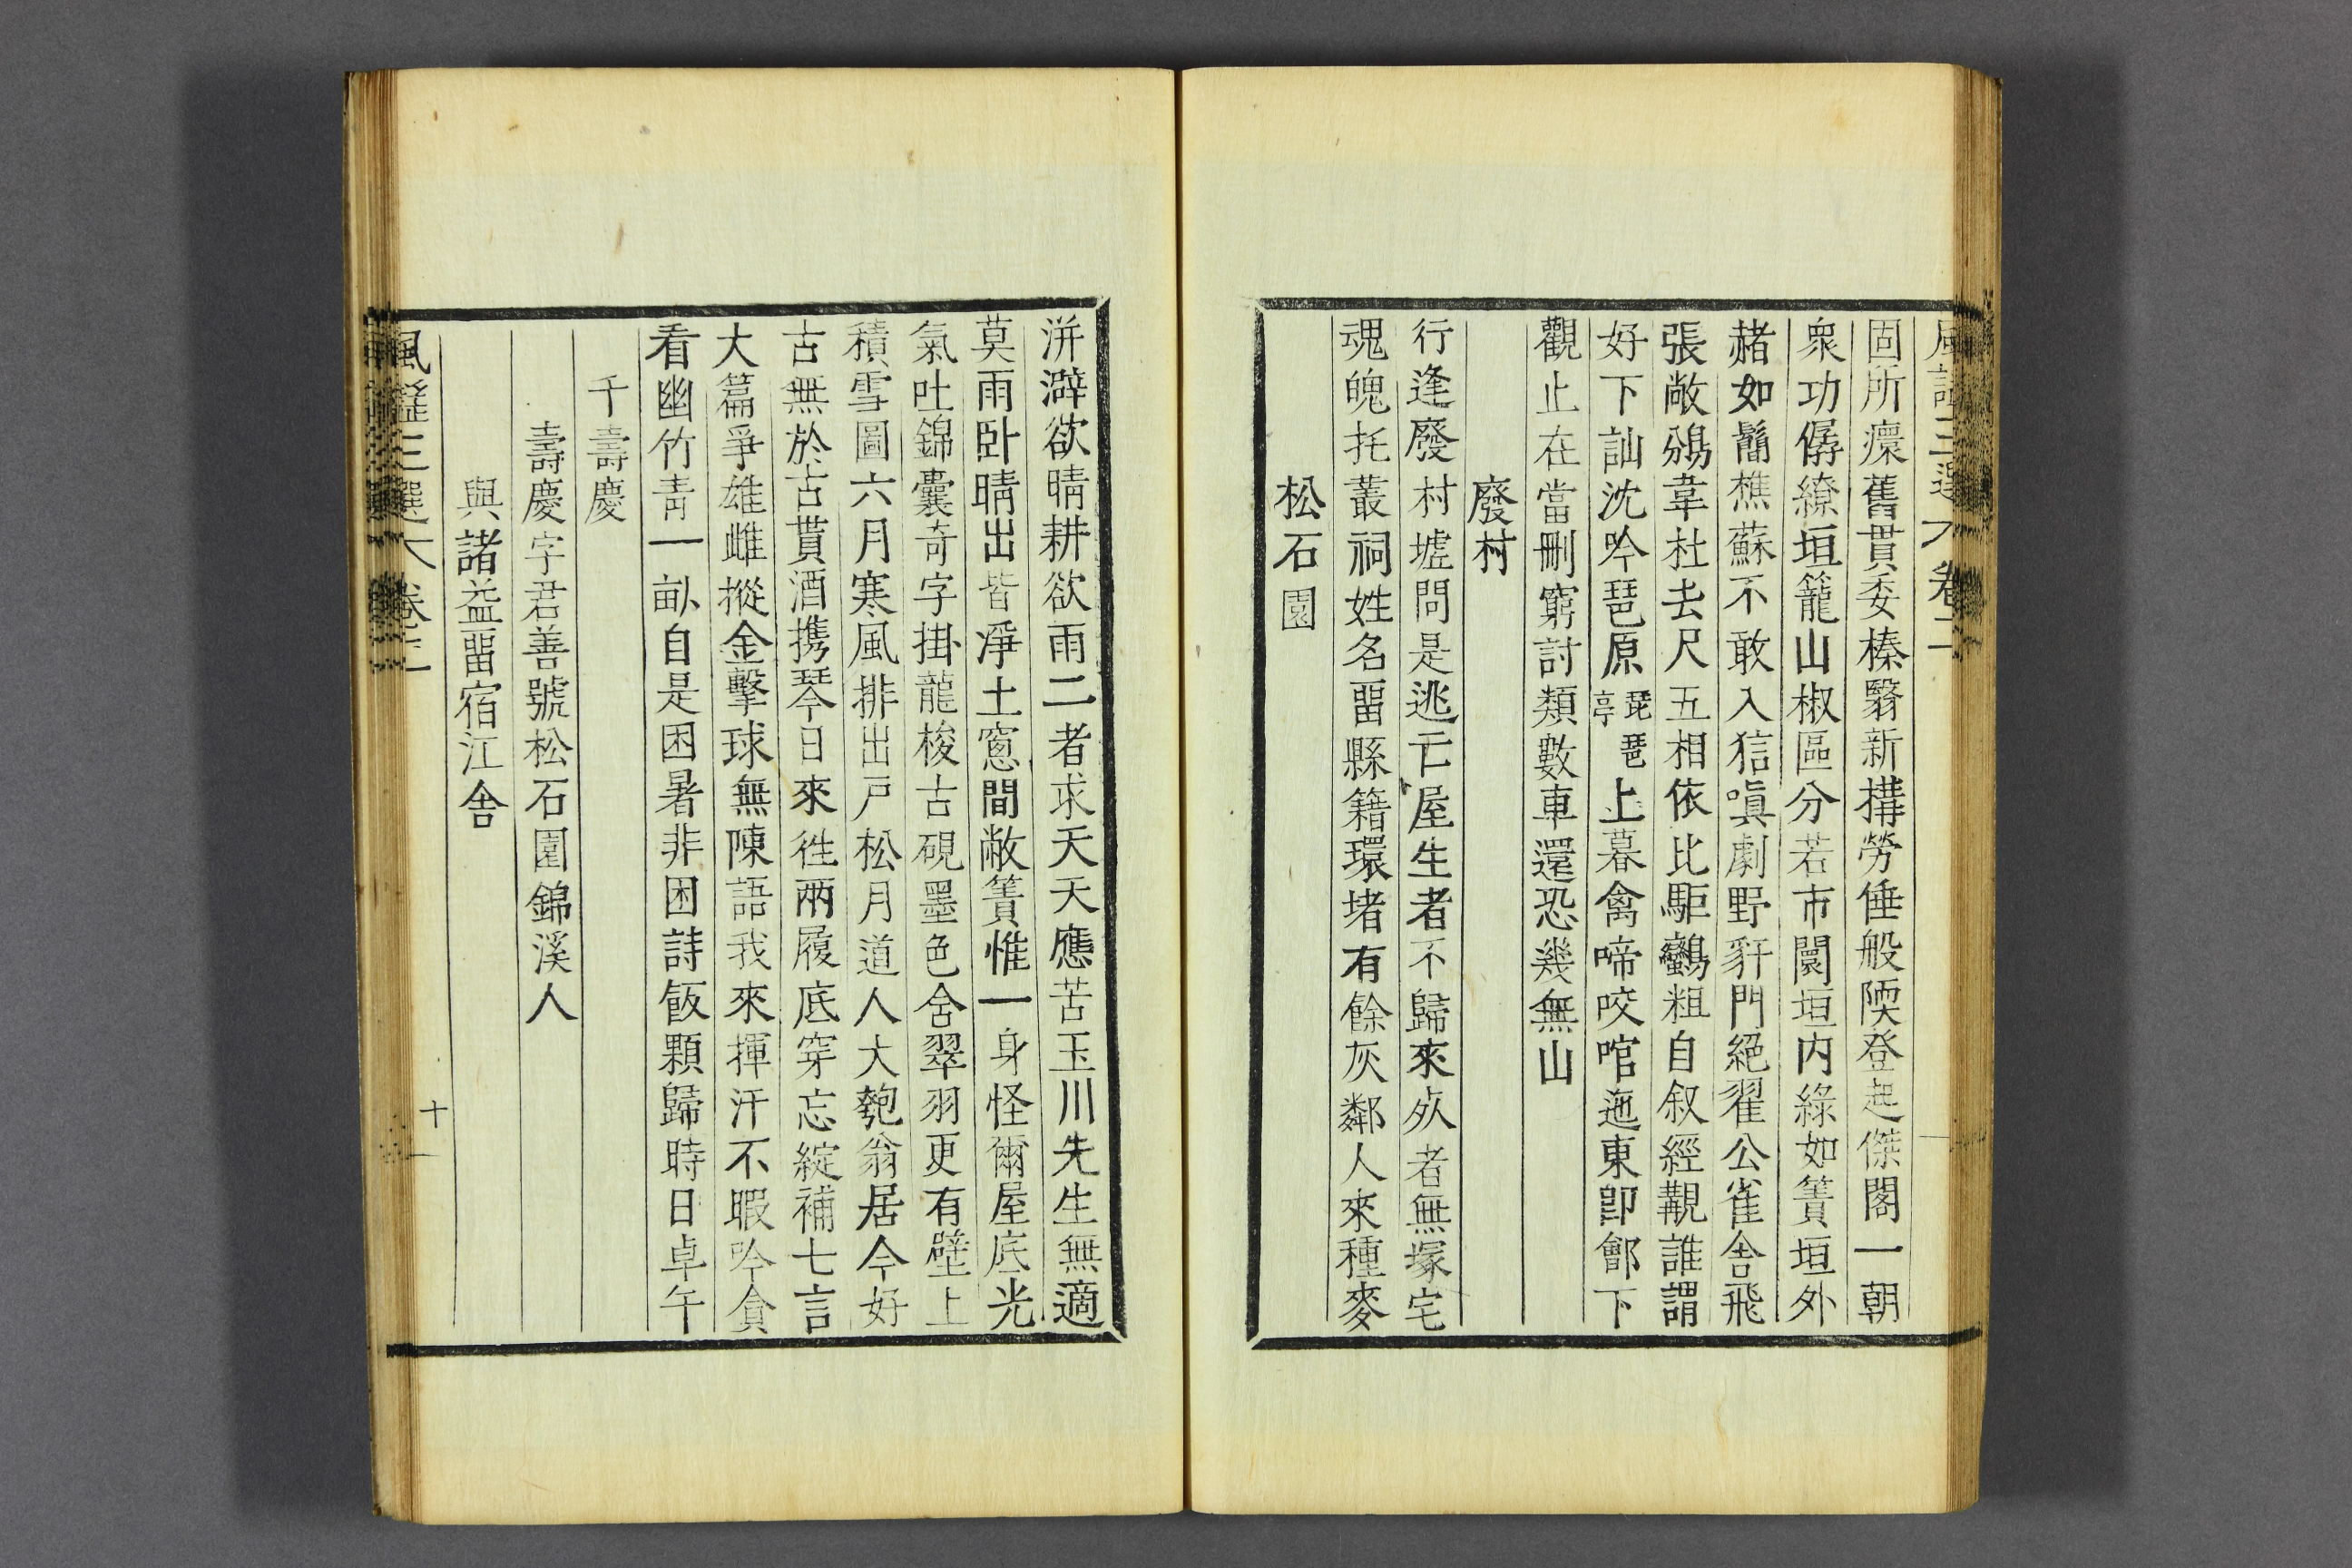 固所癝舊貫委榛翳新搆勞倕般陾登起傑閣一朝
衆功僝繚垣籠山椒區分若市闤垣内綠如簀垣外
赭如鬜樵蘇不敢入狺嗔劇野豻門絕翟公雀舎飛
張敞鳻韋杜去尺五相依比駏鸙粗自叙經觏誰謂
好下訕沈吟琶原琵琶亭上暮禽啼咬啘迤東卽鄫下
觀止在當刪窮討類數車還恐幾無山
廢村
行逢廢村墟問是逃亡屋生者不歸來死者無塚宅
魂魄托叢祠姓名畱縣籍環堵有餘灰鄰人來種麥
松石園
洴澼欲晴耕欲雨二者求天天應苦玉川先生無適
莫雨卧晴出皆凈土窓間敝簀惟一身怪爾屋底光
氣吐錦囊奇字掛龍梭古硯墨色含翠羽更有壁上
積雪圖六月寒風排出戸松月道人大匏翁居今好
古無於古貰酒携琴日來徃兩履底穿忘綻補七言
大篇爭雄雌摐金擊球無陳語我來揮汗不暇吟貪
看幽竹靑一畝自是困暑非困詩飯顆歸時日卓午
千壽慶
壽慶字君善號松石園錦溪人
與諸益畱宿江舎
風謠三選 卷二
十